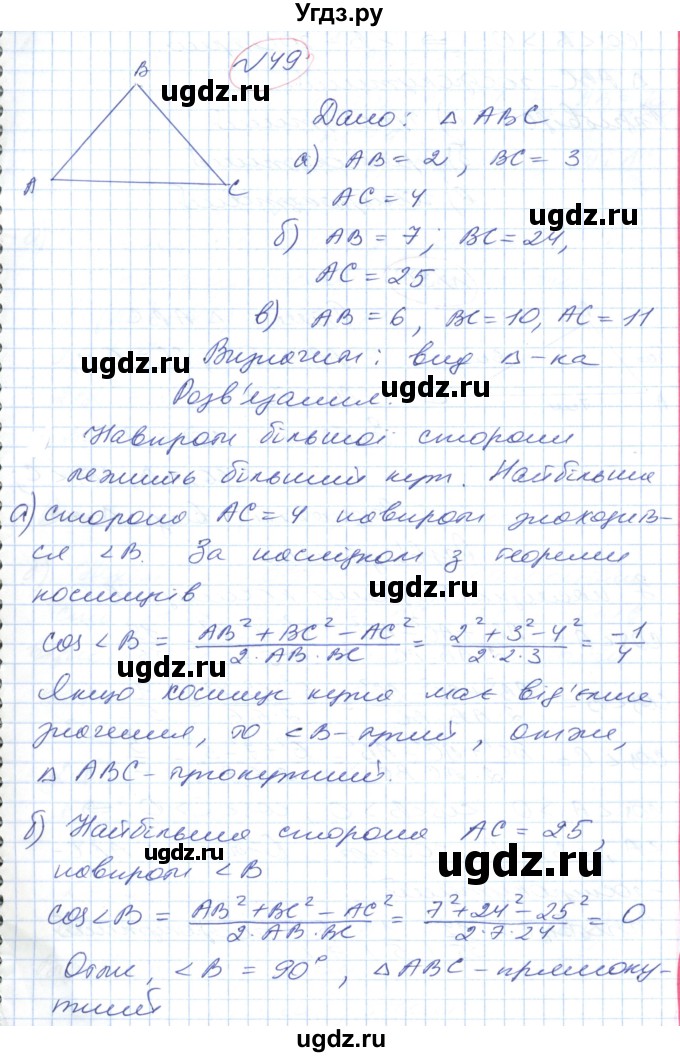 Угдз.ру
№ 49
B
ugdz.ru
Дано: △ ABC
A
C
а) AB = 2, BC = 3
AC = 4
ugdz.ru
б) AB = 7; BC = 24,
AC = 25
в) AB = 6, BC = 10, AC = 11
ugdz.ru
Визначити: вид △-ка
Розв'язання.
ugdz.ru
Навпроти більшої сторони
лежить більший кут. Найбільша
ugdz.ru
а) сторона AC = 4 навпроти знаходив-
ся ∠B. За наслідком з теореми
косинусів
ugdz.ru
cos ∠B = (AB² + BC² − AC²)/(2·AB·BC) = (2² + 3² − 4²)/(2·2·3) = −1/4
ugdz.ru
Якщо косинус кута має від'ємне
ugdz.ru
значення, то ∠B – тупий, отже,
△ ABC – тупокутний.
б) Найбільша сторона AC = 25,
ugdz.ru
ugdz.ru
навпроти ∠B
cos ∠B = (AB² + BC² − AC²)/(2·AB·BC) = (7² + 24² − 25²)/(2·7·24) = 0
Отже, ∠B = 90°, △ ABC – прямоку-
тний
ugdz.ru
ugdz.ru
ugdz.ru